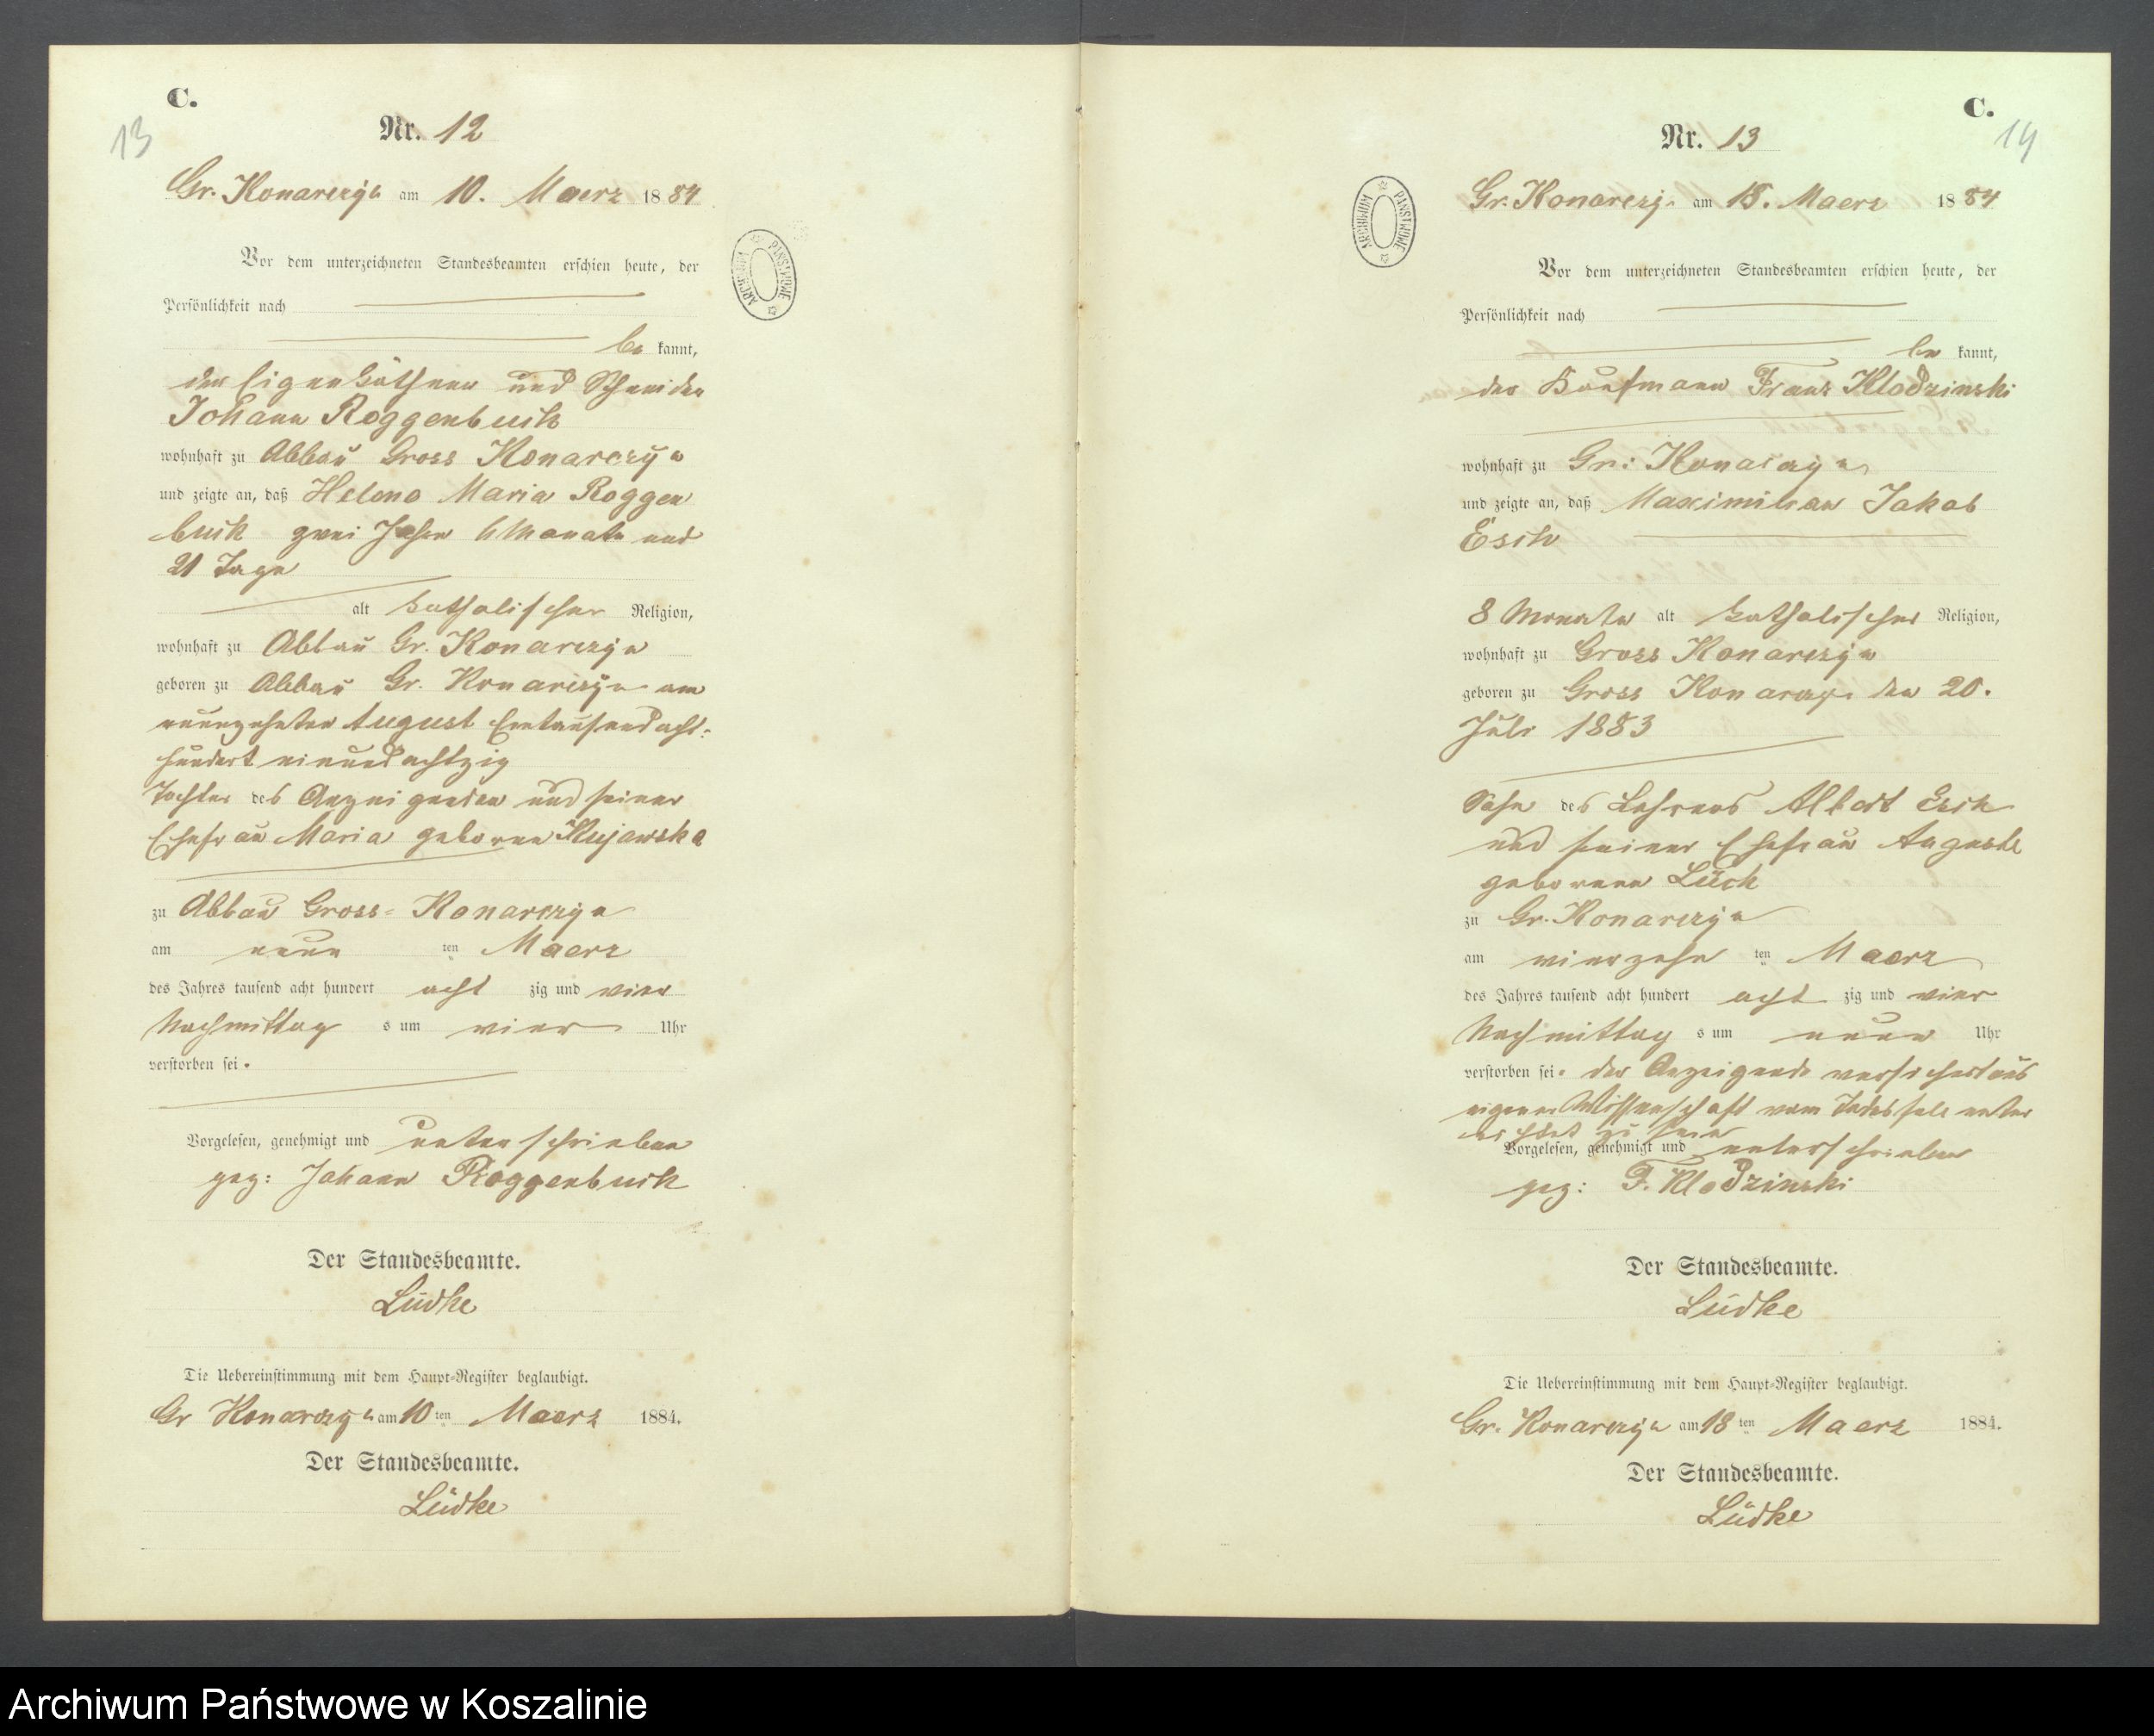 C.
13
Nr. 12
Gr. Konarczyn am 10. Maerz 1884
Vor dem unterzeichneten Standesbeamten erschien heute, der
Persönlichkeit nach
be kannt,
der Eigenkäthner und Schneider
Johann Roggenbuck
wohnhaft zu Abbau Gross Konarczyn
und zeigte an, daß Helena Maria Roggen
buck zwei Jahre 6 Monate und
21 Tage
alt katholischer Religion,
wohnhaft zu Abbau Gr. Konarczyn
geboren zu Abbau Gr. Konarczyn am
neunzehnten August Eintausend acht-
hundert einundachtzig
Tochter des Anzeigenden und seiner
Ehefrau Maria geborene Kujawska
zu Abbau Gross-Konarczyn
am neun ten Maerz
des Jahres tausend acht hundert acht zig und vier
Nachmittag s um vier Uhr
verstorben sei.
Vorgelesen, genehmigt und unterschrieben
gez: Johann Roggenbuck
Der Standesbeamte.
Lüdke
Die Uebereinstimmung mit dem Haupt-Register beglaubigt.
Gr Konarczyn am 10 ten Maerz 1884.
Der Standesbeamte.
Lüdke
ARCHIWUM PAŃSTWOWE
C.
14
Nr. 13
Gr. Konarczyn am 18. Maerz 1884
ARCHIWUM PAŃSTWOWE
Vor dem unterzeichneten Standesbeamten erschien heute, der
Persönlichkeit nach
be kannt,
der Kaufmann Franz Klodzinski
wohnhaft zu Gr: Konarczyn
und zeigte an, daß Maximilian Jakob
Esch
8 Monate alt katholischer Religion,
wohnhaft zu Gross Konarczyn
geboren zu Gross Konarczyn den 20.
Juli 1883
Sohn des Lehrers Albert Esch
und seiner Ehefrau Auguste
geborene Lück
zu Gr. Konarczyn
am vierzehn ten Maerz
des Jahres tausend acht hundert acht zig und vier
Nachmittag s um neun Uhr
verstorben sei. der Anzeigende versichert aus
eigener Wissenschaft vom Todesfall unter
richtet zu sein
Vorgelesen, genehmigt und unterschrieben
gez: F. Klodzinski
Der Standesbeamte.
Lüdke
Die Uebereinstimmung mit dem Haupt-Register beglaubigt.
Gr. Konarczyn am 18 ten Maerz 1884.
Der Standesbeamte.
Lüdke
Archiwum Państwowe w Koszalinie